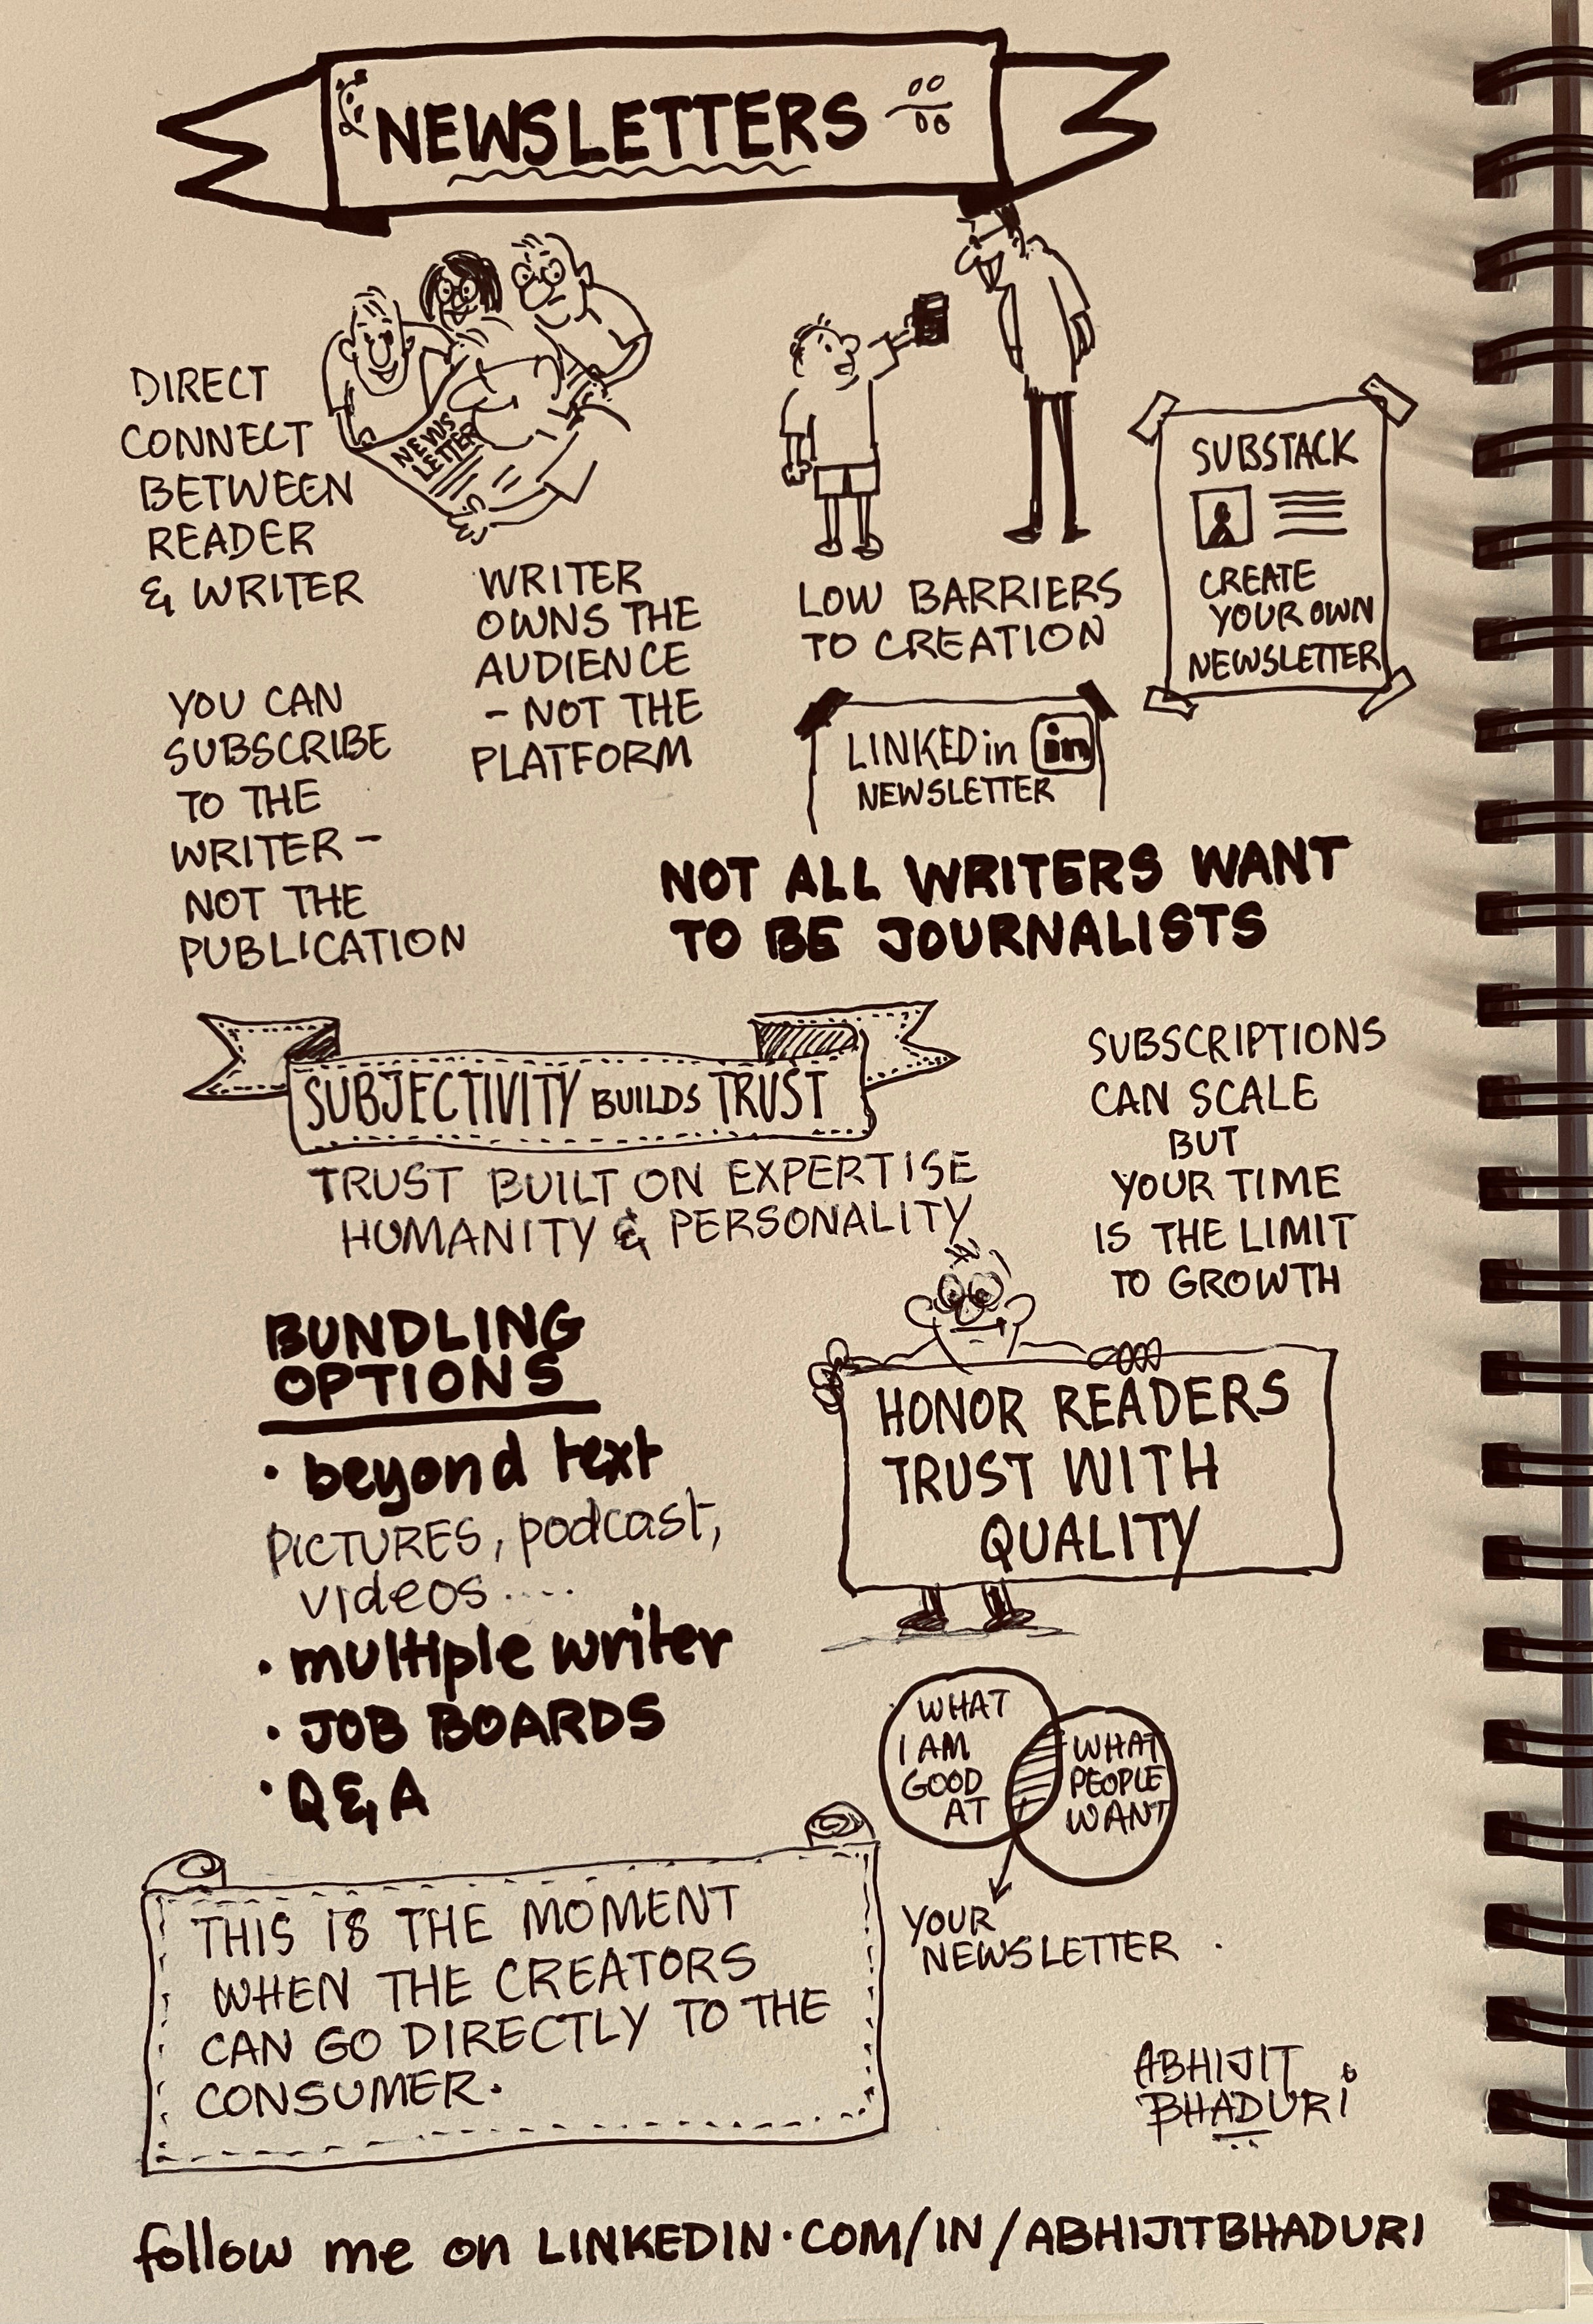 NEWSLETTERS
NEWS
LETTER
DIRECT
CONNECT
BETWEEN
READER
& WRITER
WRITER
OWNS THE
AUDIENCE
- NOT THE
PLATFORM
YOU CAN
SUBSCRIBE
TO THE
WRITER -
NOT THE
PUBLICATION
LOW BARRIERS
TO CREATION
SUBSTACK
CREATE
YOUR OWN
NEWSLETTER
LINKEDin in
NEWSLETTER
NOT ALL WRITERS WANT
TO BE JOURNALISTS
SUBJECTIVITY BUILDS TRUST
TRUST BUILT ON EXPERTISE
HUMANITY & PERSONALITY
SUBSCRIPTIONS
CAN SCALE
BUT
YOUR TIME
IS THE LIMIT
TO GROWTH
BUNDLING
OPTIONS
• beyond text
PICTURES, podcast,
videos ....
• multiple writer
• JOB BOARDS
• Q&A
HONOR READERS
TRUST WITH
QUALITY
WHAT
I AM
GOOD
AT
WHAT
PEOPLE
WANT
YOUR
NEWSLETTER .
THIS IS THE MOMENT
WHEN THE CREATORS
CAN GO DIRECTLY TO THE
CONSUMER.
ABHIJIT
BHADURI
follow me on LINKEDIN.COM/IN/ABHIJITBHADURI